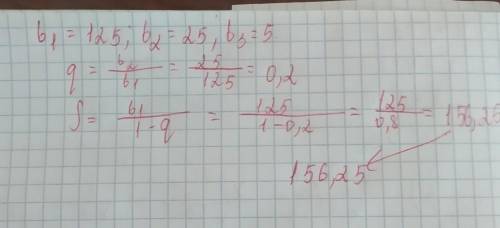 b₁ = 125; b₂ = 25, b₃ = 5
q = b₂/b₁ = 25/125 = 0,2
S = b₁/1-q = 125/1-0,2 = 125/0,8 = 156,25
156,25